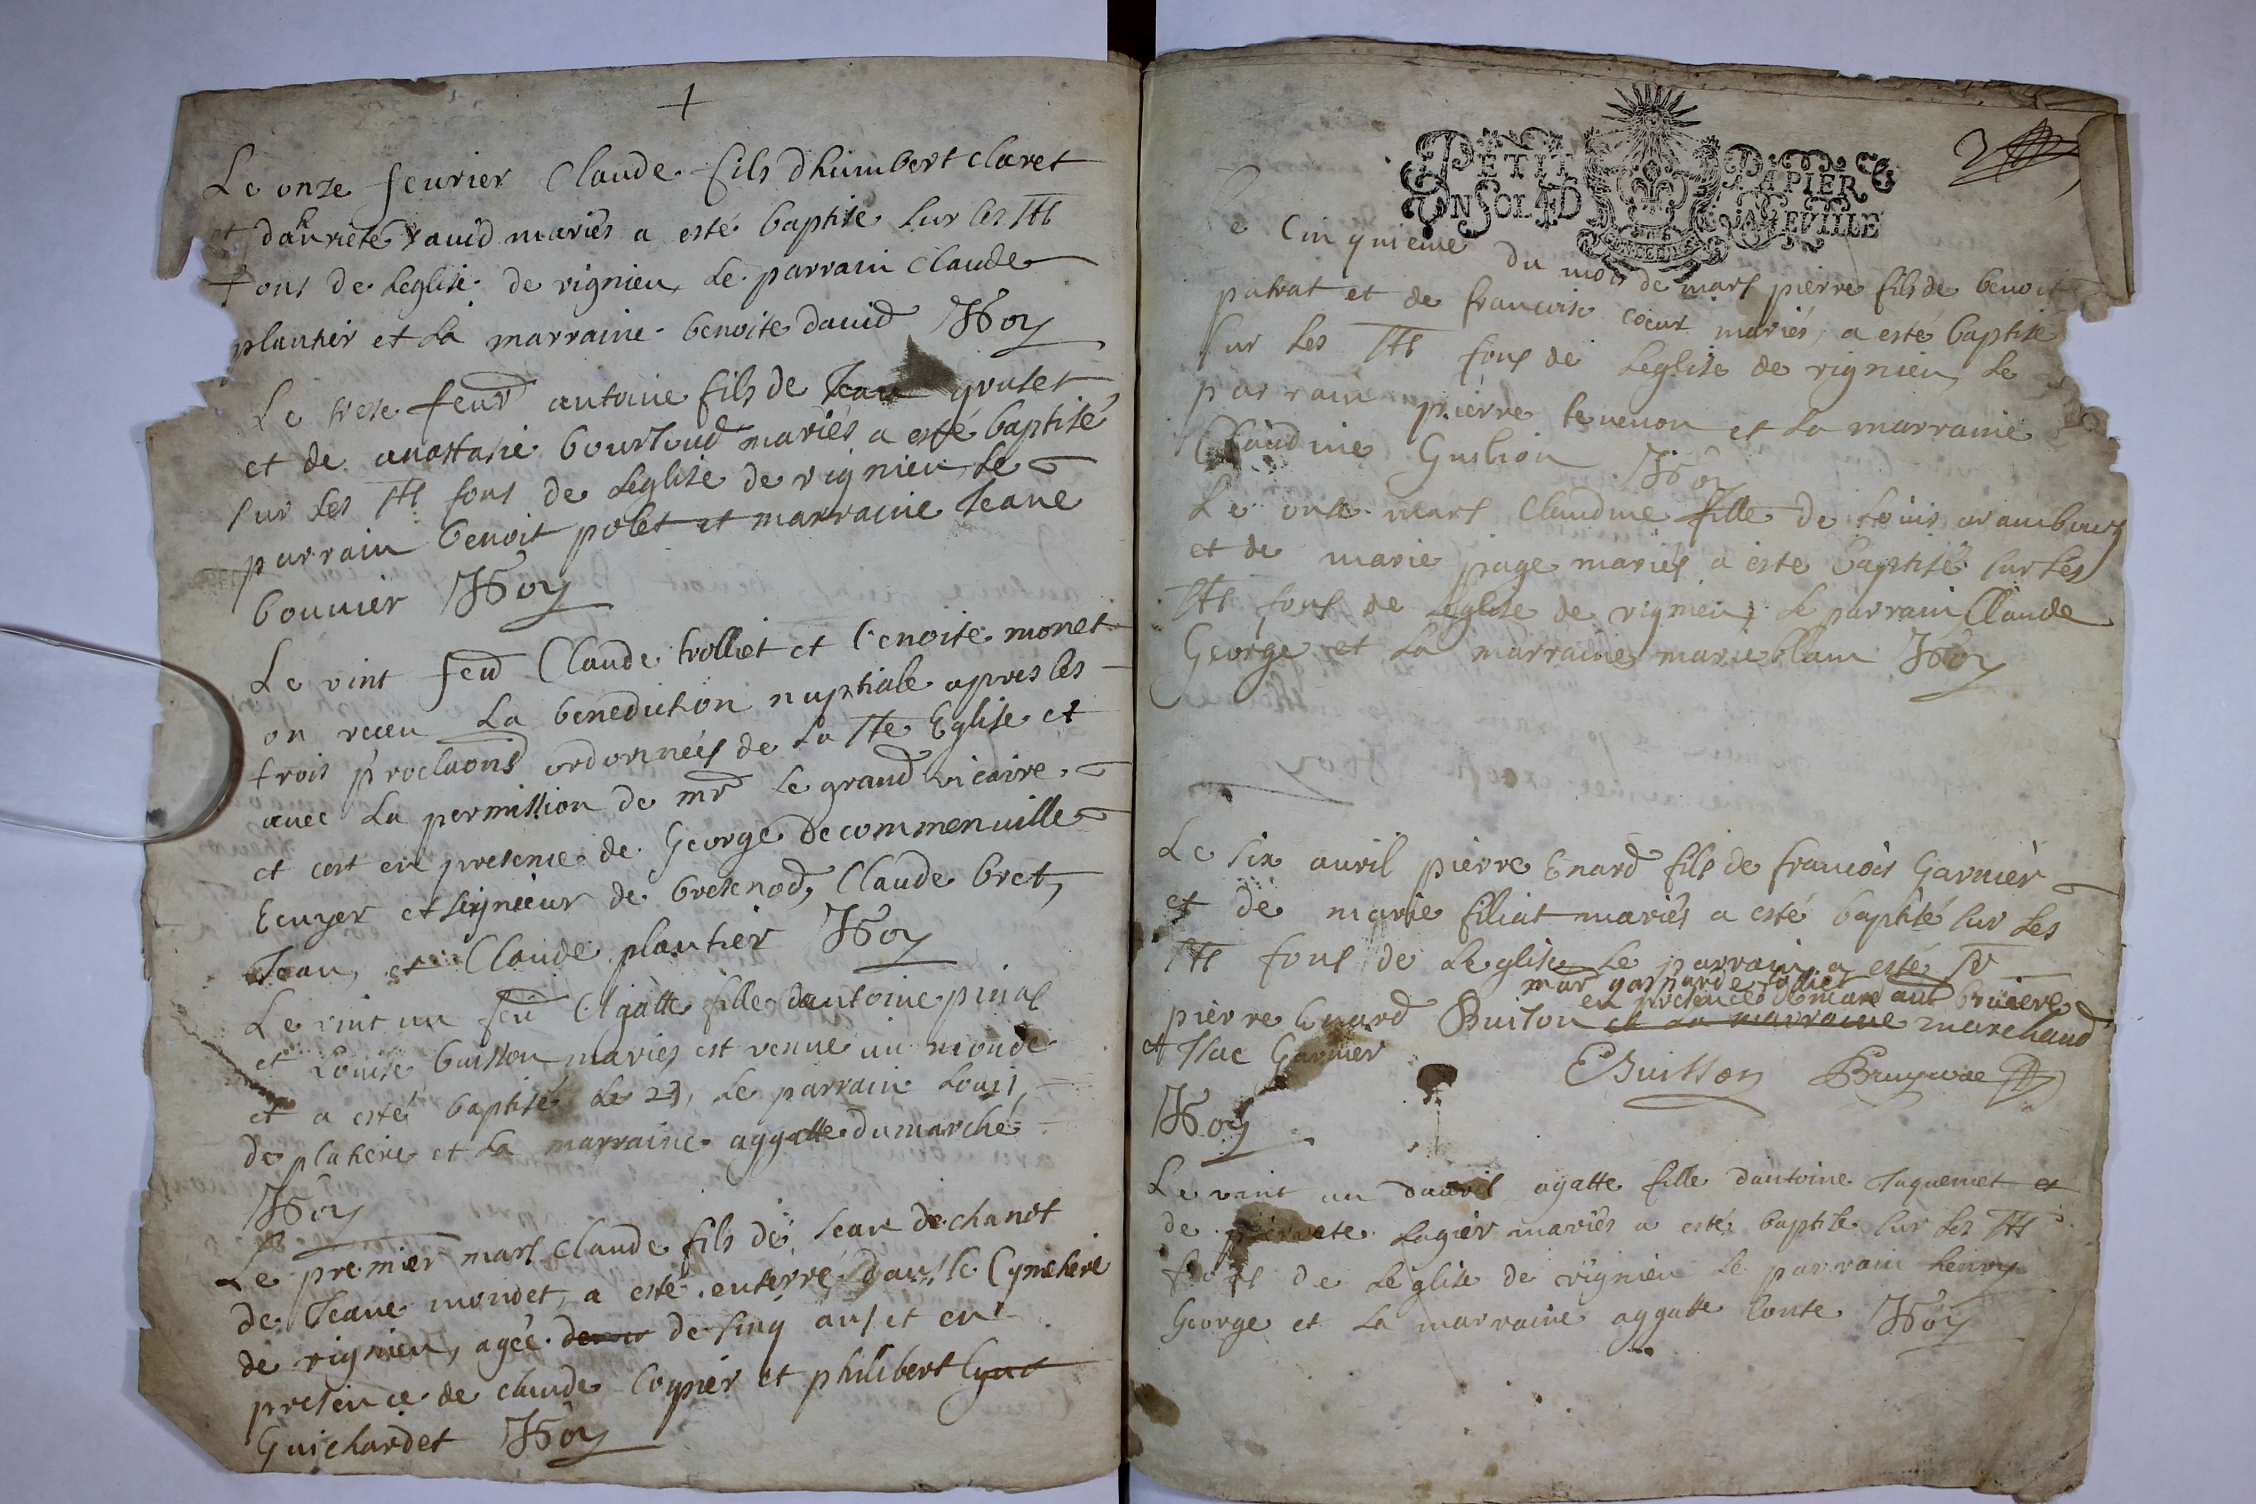 +
Le onze feurier Claude fils dhumbert claret
et danriete dauid mariés a esté baptise sur les Sts
fons de leglise de vignieu, Le parrain Claude
plantier et La marraine benoite dauid Hoy
Le trese feur antoine fils de Jean
et de anastasie bourloud mariés a esté baptisé
sur Les Sts fons de Leglise de vignieu Le
parrain benoit polet et marraine Jeane
bouuier Hoy
Le vint feu Claude trolliet et benoite monet
on receu La benediction nuptiale apres les
trois proclaons ordonnées de La Ste Eglise et
auec La permission de mr Le grand vicaire,
et cest en presence de George de commenuille
Ecuyer et seigneur de bresenod, Claude bret,
Jean, et Claude plantier Hoy
Le vint un feu Agatte fille dantoine pinal
et Louise buisson mariés est venue au monde
et a esté baptisé Le 23, Le parrain Louis
de platiere et La marraine aggatte dumarché
Hoy
Le premier mars Claude fils de Jean dechanot
de Jeane mondet, a esté enterré dans le Cymetiere
de vignieu, agée de sinq ans et en
presence de claude Cognier et philibert
Guichardet Hoy
2
PETIT PAPIER
UN SOL 4 D
Le Cinquieme du mois de mars pierre fils de benoit
patrat et de francoise coeur mariés, a esté baptise
sur Les Sts fons de Leglise de vignieu, Le
parrain pierre teuenon et La marraine
Claudine Guslion Hoy
Le onze mars Claudine fille de Louis arambourg
et de marie page mariés a esté baptisé sur Les
Sts fons de Leglise de vignieu; Le parrain Claude
George et La marraine marie blanc Hoy
Le six auril pierre Enard fils de francois Garnier
et de marie filliat mariés a esté baptisé sur Les
Sts fons de Leglise Le parrain a esté Sr
mar
en presence
bruiere
pierre Enard Buison et la marraine marchand
et Isac Garnier
Buisson Bruyere
Hoy
Le vint un dauril agatte fille dantoine Juquemet et
de pierrete Lagier mariés a esté baptise sur Les Sts
fons de Leglise de vignieu Le parrain henry
George et La marraine aggatte conte Hoy